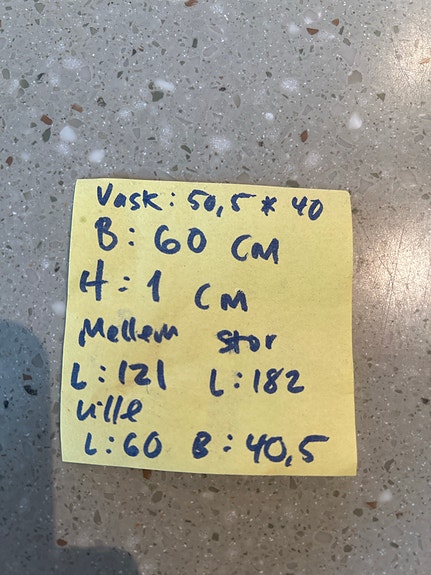 Vask: 50,5 * 40
B: 60 CM
H: 1 CM
Mellem Stor
L: 121 L: 182
Lille
L: 60 B: 40,5